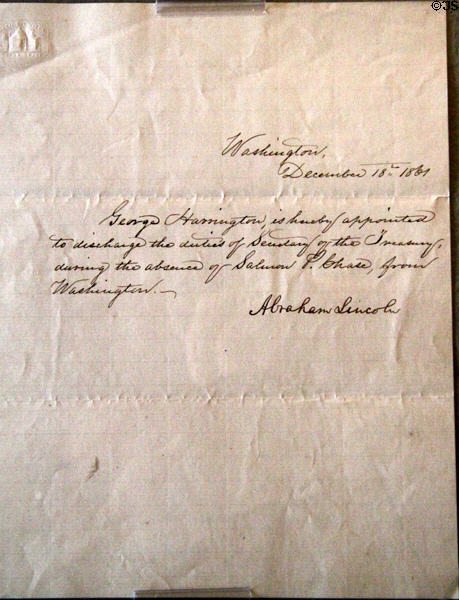 ©JS
Washington,
December 18th 1861
George Harrington, is hereby appointed
to discharge the duties of Secretary of the Treasury,
during the absence of Salmon P. Chase, from
Washington.—
Abraham Lincoln